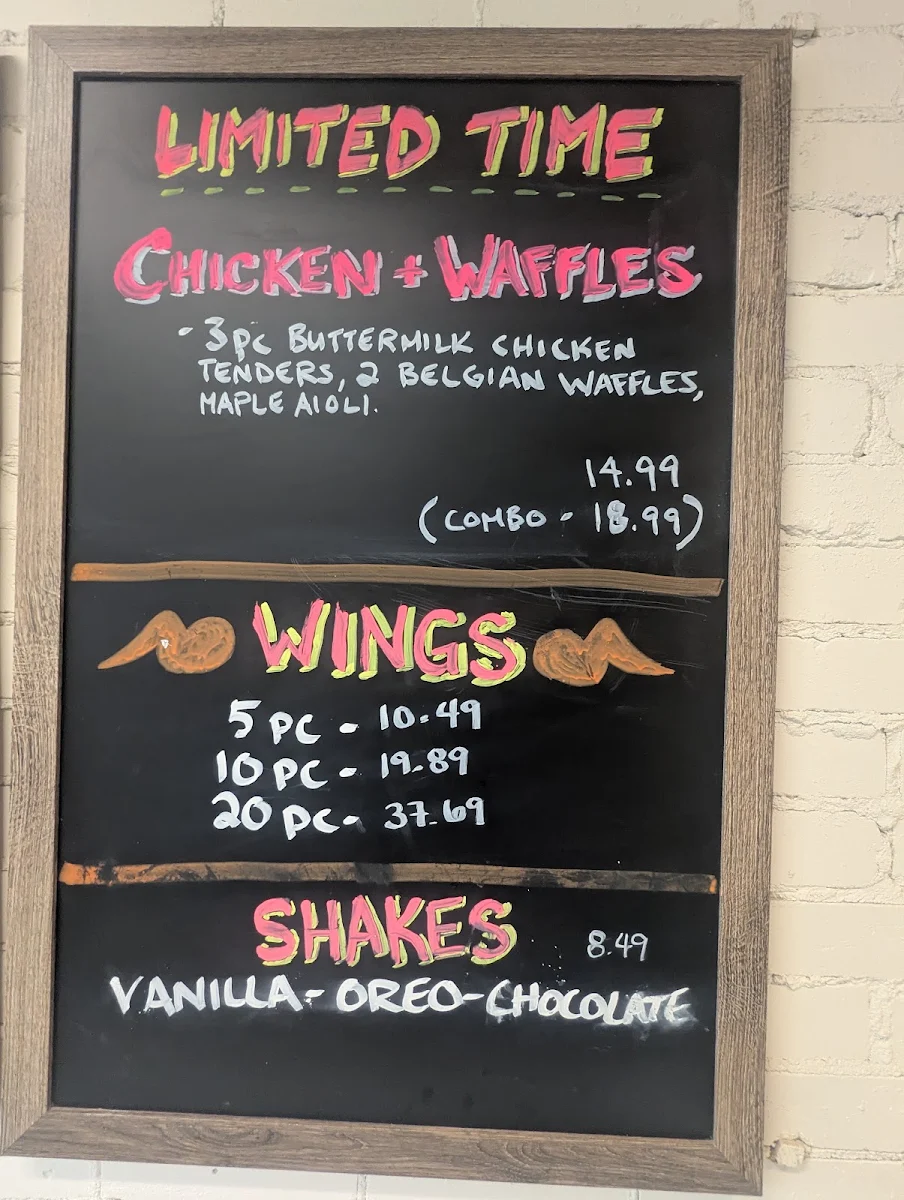 LIMITED TIME
CHICKEN + WAFFLES
- 3pc BUTTERMILK CHICKEN
TENDERS, 2 BELGIAN WAFFLES,
MAPLE AIOLI.
14.99
(COMBO - 18.99)
WINGS
5 PC - 10.49
10 PC - 19.89
20 PC - 37.69
SHAKES 8.49
VANILLA - OREO - CHOCOLATE